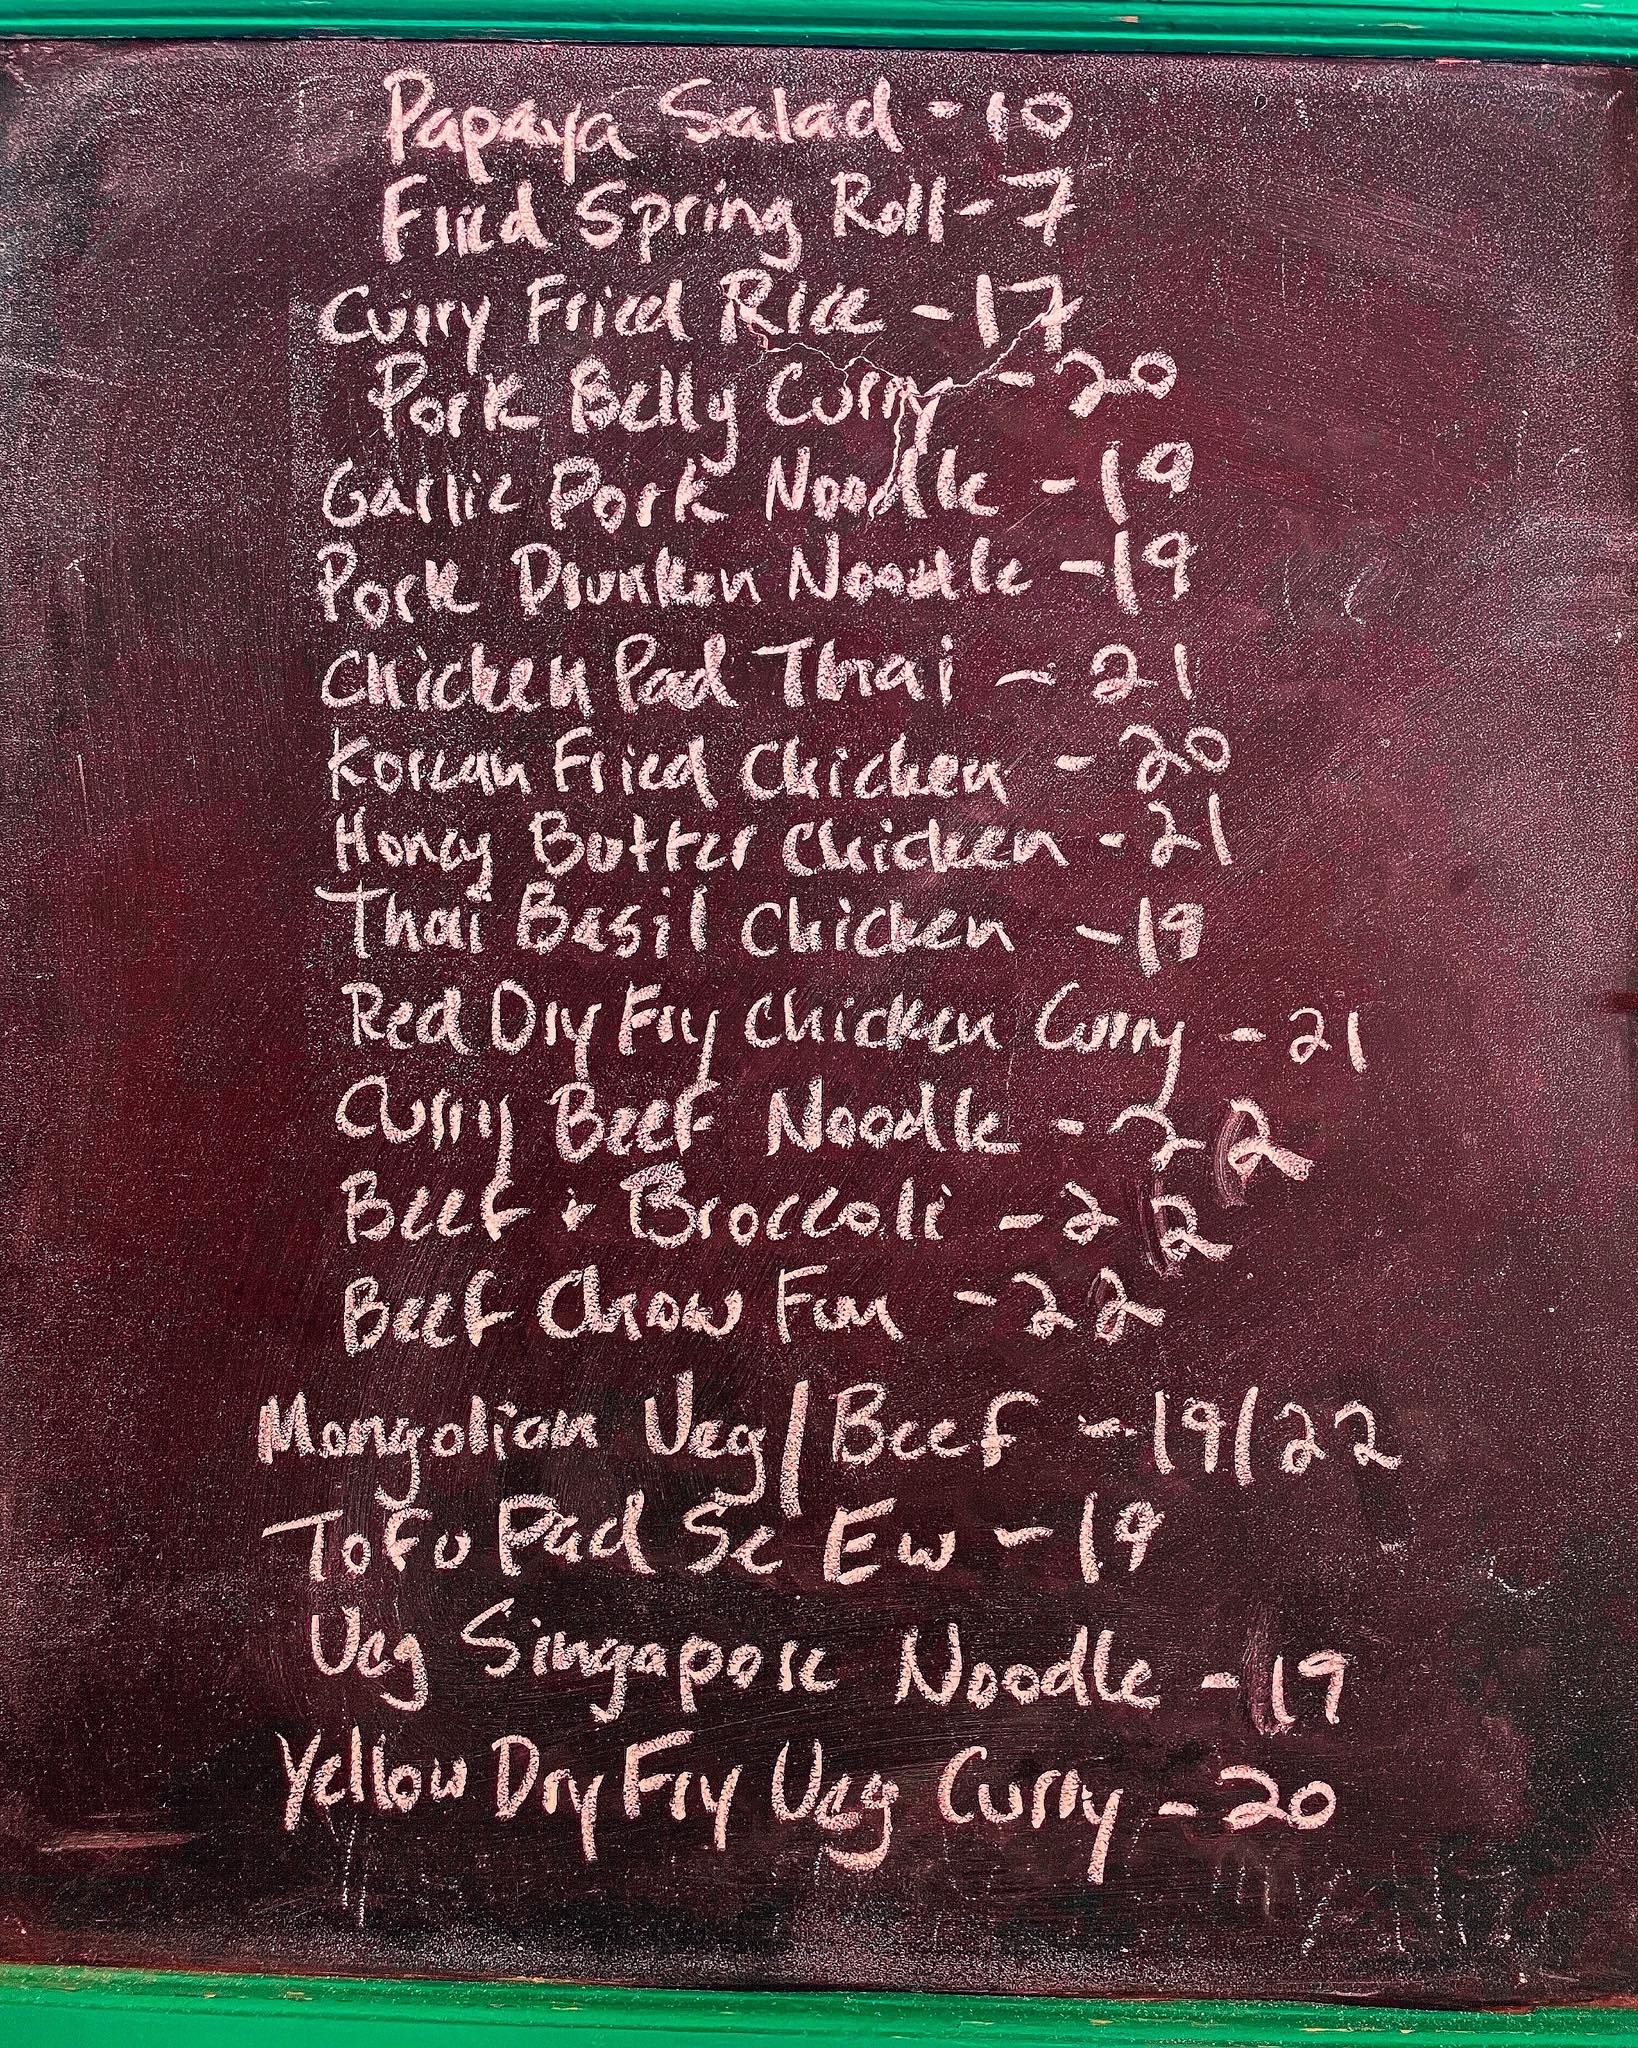 Papaya Salad - 10
Fried Spring Roll - 7
Curry Fried Rice - 17
Pork Belly Curry - 20
Garlic Pork Noodle - 19
Pork Drunken Noodle - 19
Chicken Pad Thai - 21
Korean Fried Chicken - 20
Honey Butter Chicken - 21
Thai Basil Chicken - 19
Red Dry Fry Chicken Curry - 21
Curry Beef Noodle - 22
Beef + Broccoli - 22
Beef Chow Fun - 22
Mongolian Veg/Beef - 19/22
Tofu Pad Se Ew - 19
Veg Singapore Noodle - 19
Yellow Dry Fry Veg Curry - 20